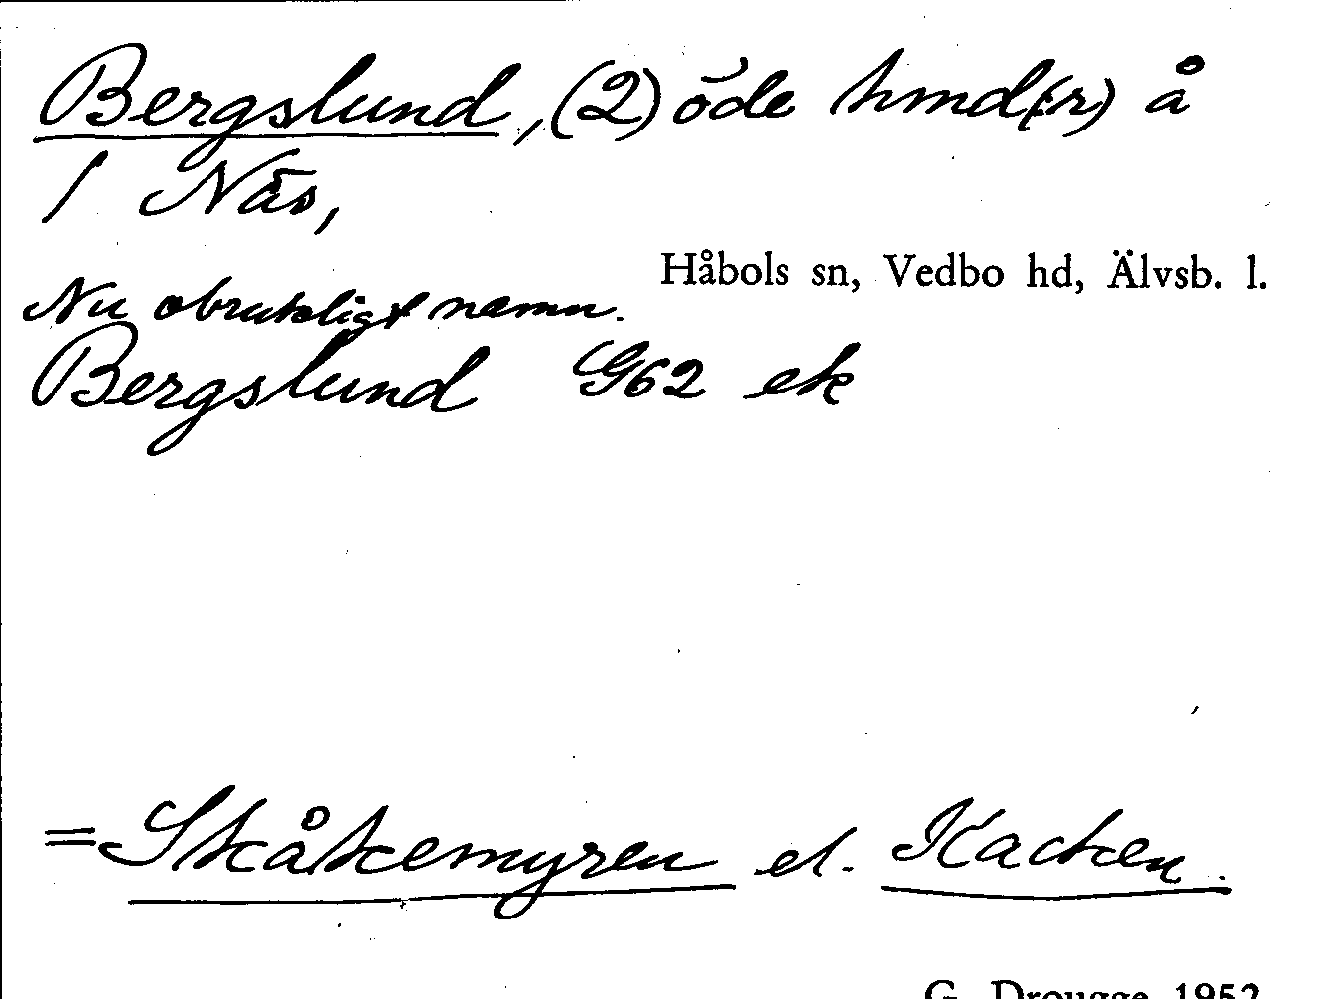 Bergslund, (2) öde hmd(r) å
1 Näs,
Håbols sn, Vedbo hd, Älvsb. l.
Nu obrukligt namn.
Bergslund G62 ek
= Skåkemyren el. Kacken.
G. Drougge 1952